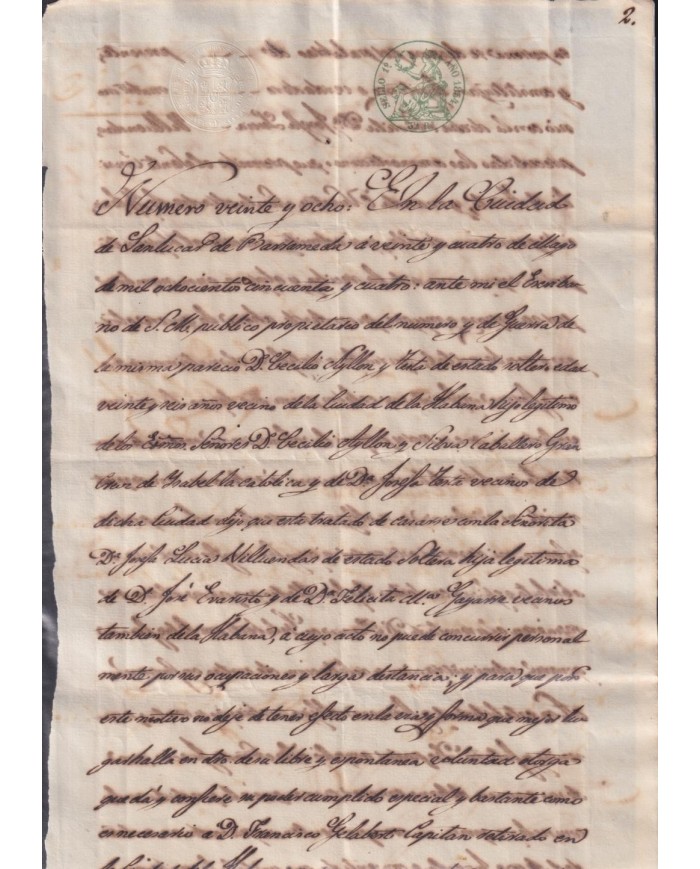 2.
SELLO 1º AÑO 1854
Numero veinte y ocho: En la Ciudad
de Sanlucar de Barrameda á veinte y cuatro de Mayo
de mil ochocientos cincuenta y cuatro: ante mi el Escriba
no de S. M. publico propietario del numero y de Guerra de
la misma parecio D. Cecilio Ayllon y de estado soltero edad
veinte y seis años vecino de la Ciudad de la Habana hijo legitimo
de los Exmos. Señores D. Cecilio Ayllon y Silva Caballero Gran
Cruz de Ysabel la catolica y de Da. Josefa vecinos de
dicha Ciudad dijo que este tratado de casarse con la Señorita
Da. Josefa Lucia de estado Soltera hija legitima
de D. José Evaristo y de Da. Felicita Ma. vecinos
tambien de la Habana, a cuyo acto no puede concurrir personal
mente por sus ocupaciones y larga distancia; y para que por
este motivo no deje de tener efecto en la via y forma que mejor lu
gar halla en dro. de su libre y espontanea voluntad otorga
que dá y confiere su poder cumplido especial y bastante como
es necesario a D. Francisco Gelabert Capitan retirado en
la Ciudad de la Habana